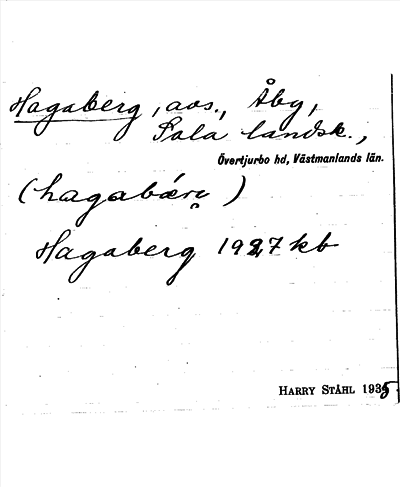 Hagaberg, avs., Åby,
Sala landsk.,
Övertjurbo hd, Västmanlands län.
(hagabærɥ)
Hagaberg 1927 kb
HARRY STÅHL 1935